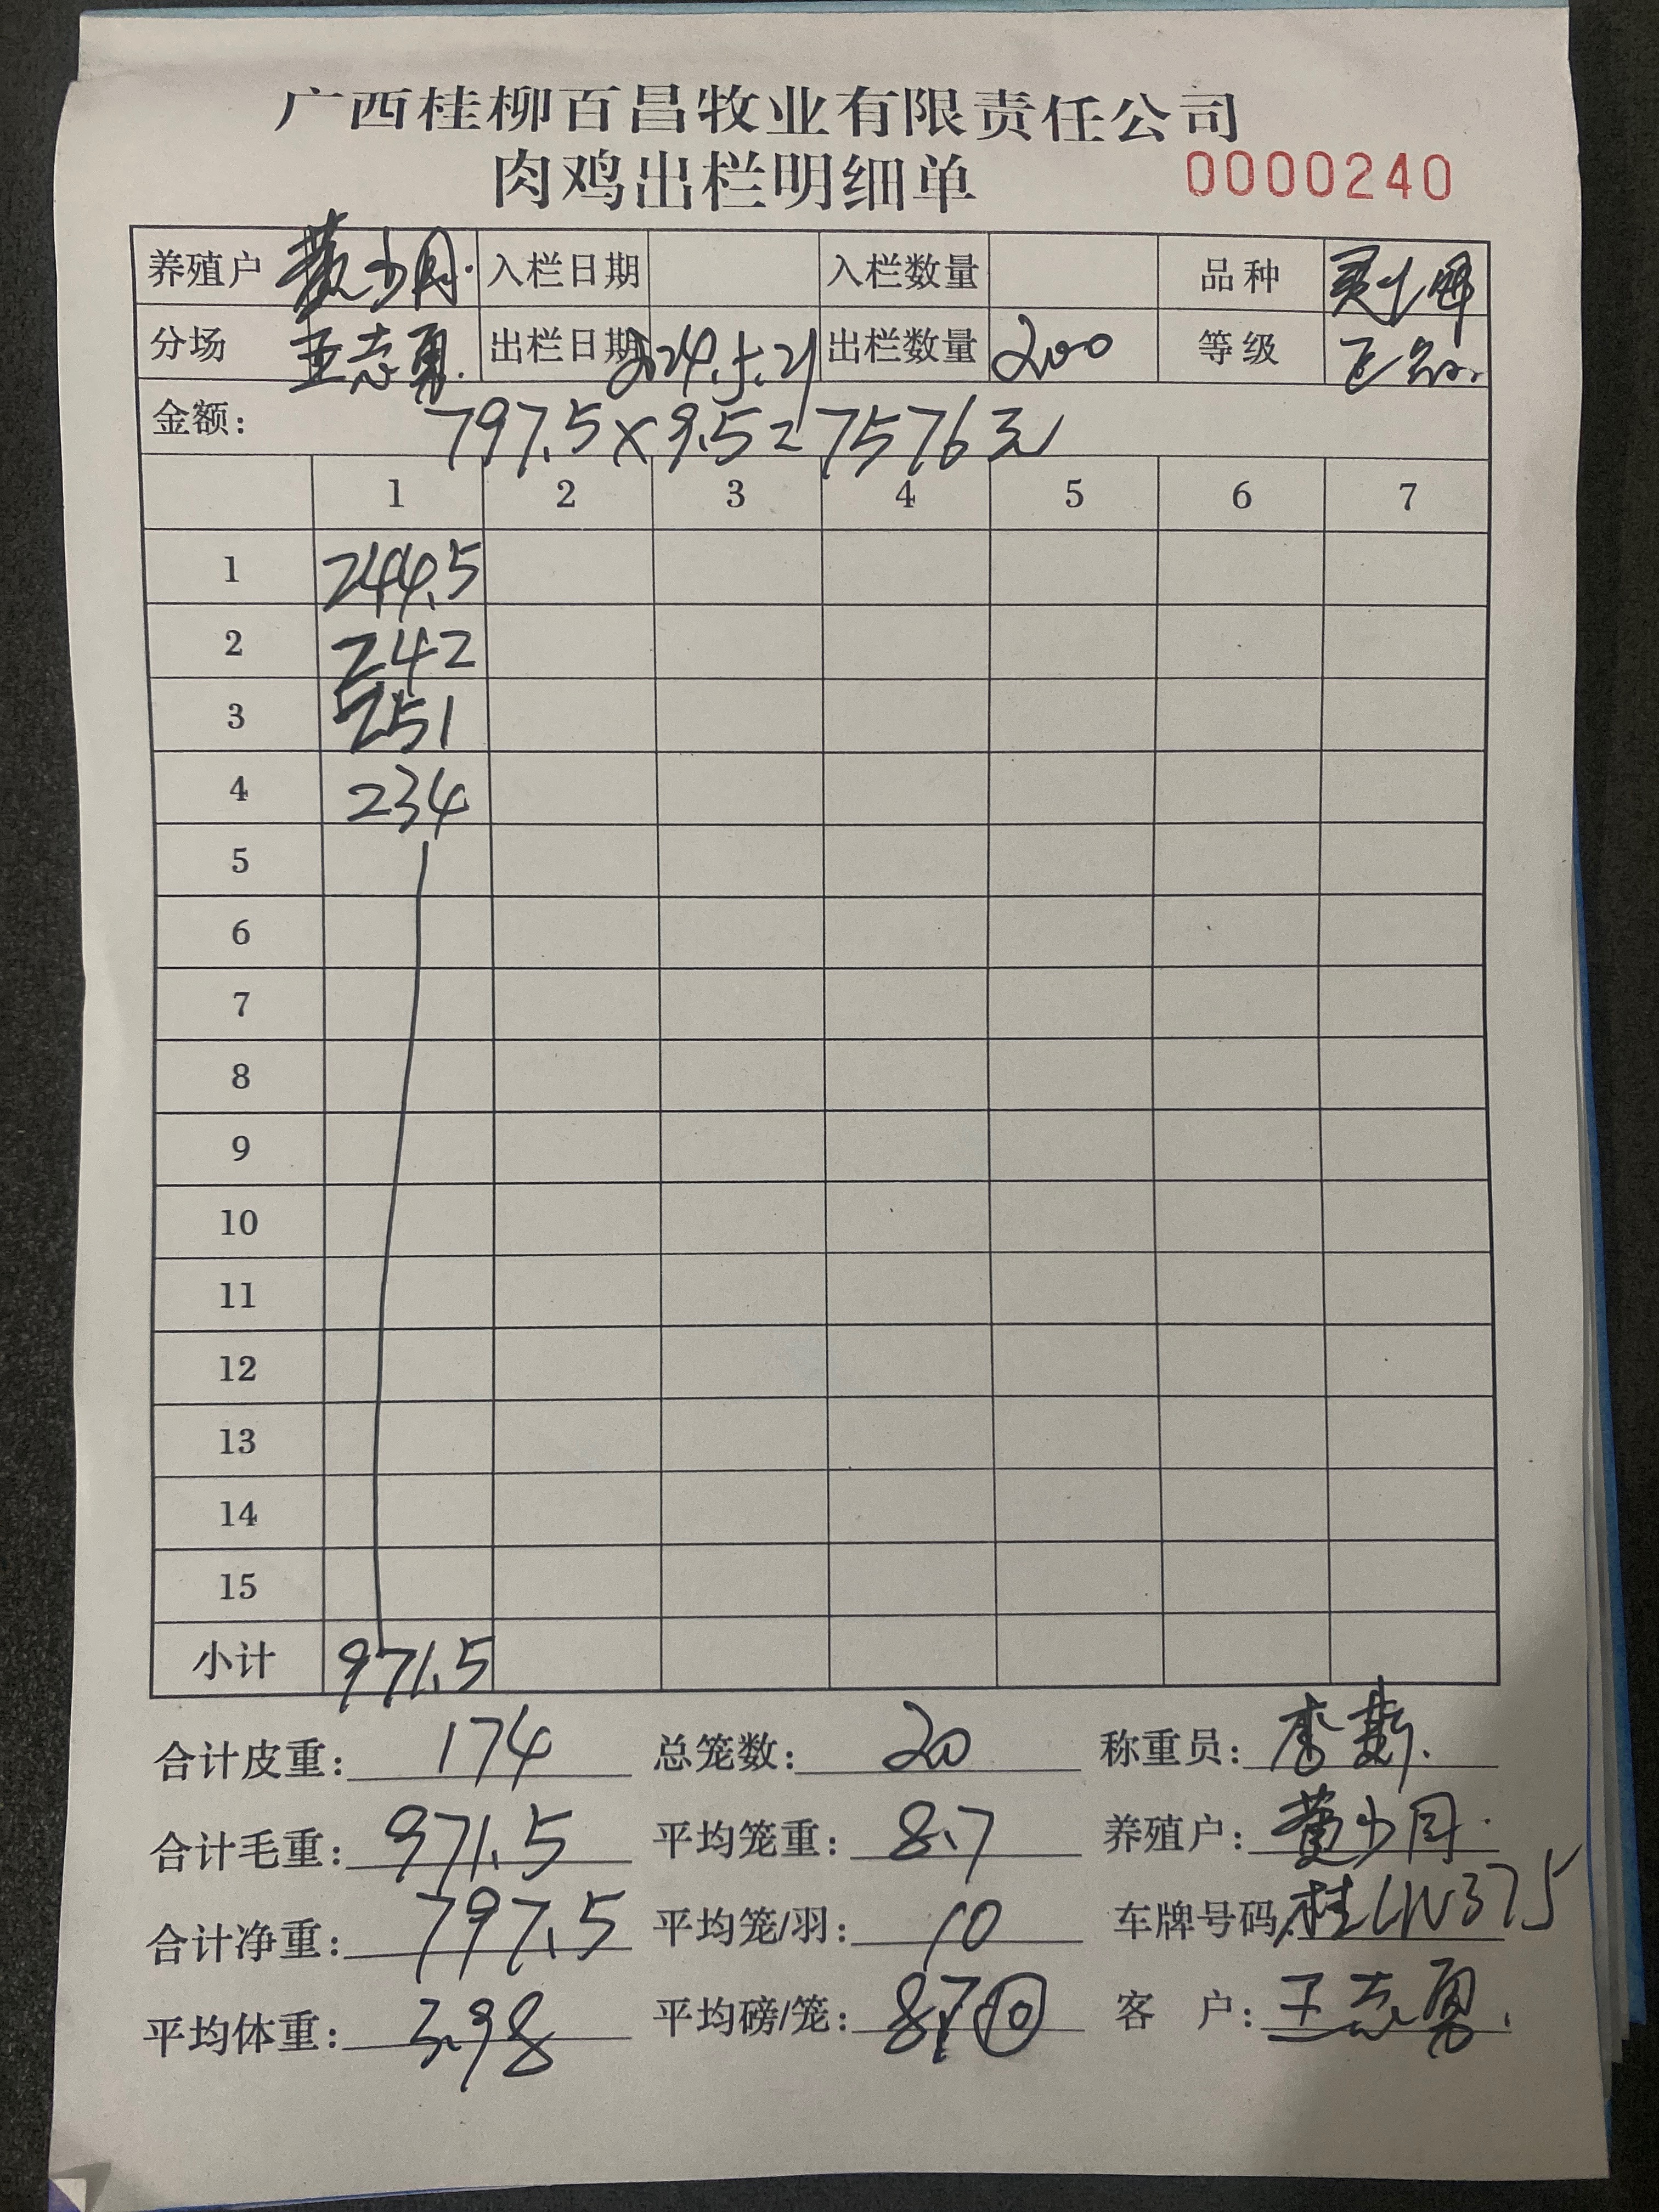 广西桂柳百昌牧业有限责任公司
肉鸡出栏明细单 0000240
养殖户 黄少月 入栏日期 入栏数量 品种
分场 王志勇 出栏日期 2024.5.21 出栏数量 200 等级
金额: 797.5×9.5=7576元
1 2 3 4 5 6 7
1 244.5
2 242
3 251
4 234
5
6
7
8
9
10
11
12
13
14
15
小计 971.5
合计皮重: 174 总笼数: 20 称重员: 李
合计毛重: 971.5 平均笼重: 8.7 养殖户: 黄少月
合计净重: 797.5 平均笼/羽: 10 车牌号码: 桂LW375
平均体重: 3.98 平均磅/笼: 客 户: 王志勇